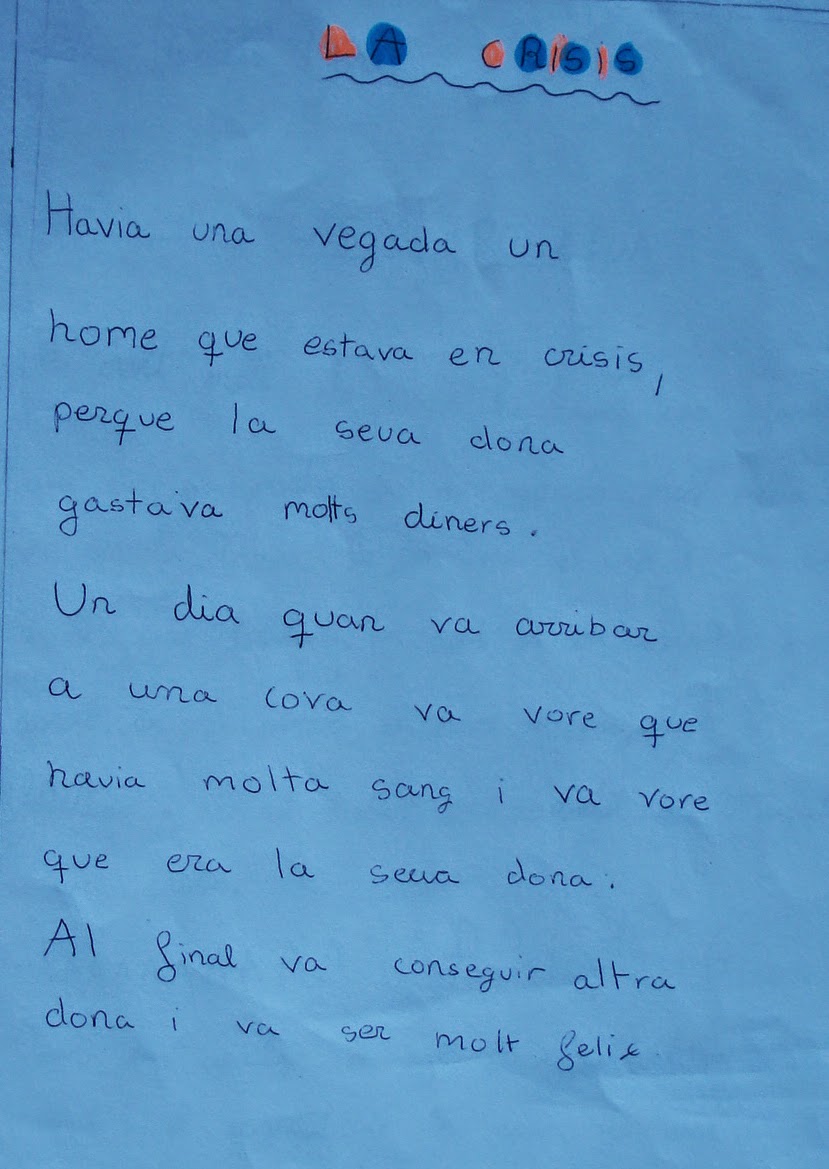 LA CRISIS
Havia una vegada un
home que estava en crisis,
perque la seua dona
gastava molts diners.
Un dia quan va arribar
a una cova va vore que
havia molta sang i va vore
que era la seua dona.
Al final va conseguir altra
dona i va ser molt felix.